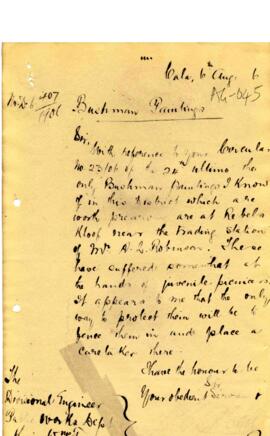 Cala, 6th Aug. 6
AG-045
No. 407
1906
Bushman Paintings
Sir,
With reference to your Circular
No. 23/06 of the 24th ultimo the
only Bushman Paintings I know
of in this District which are
worth preserving are at Rebels
Kloof near the trading station
of Mr. Robinson. These
have suffered somewhat at
the hands of juvenile picnicers
It appears to me that the only
way to protect them will be to
fence them in and place a
caretaker there.
I have the honour to be
Sir
Your obedient Servant
The
Divisional Engineer
Works Dept